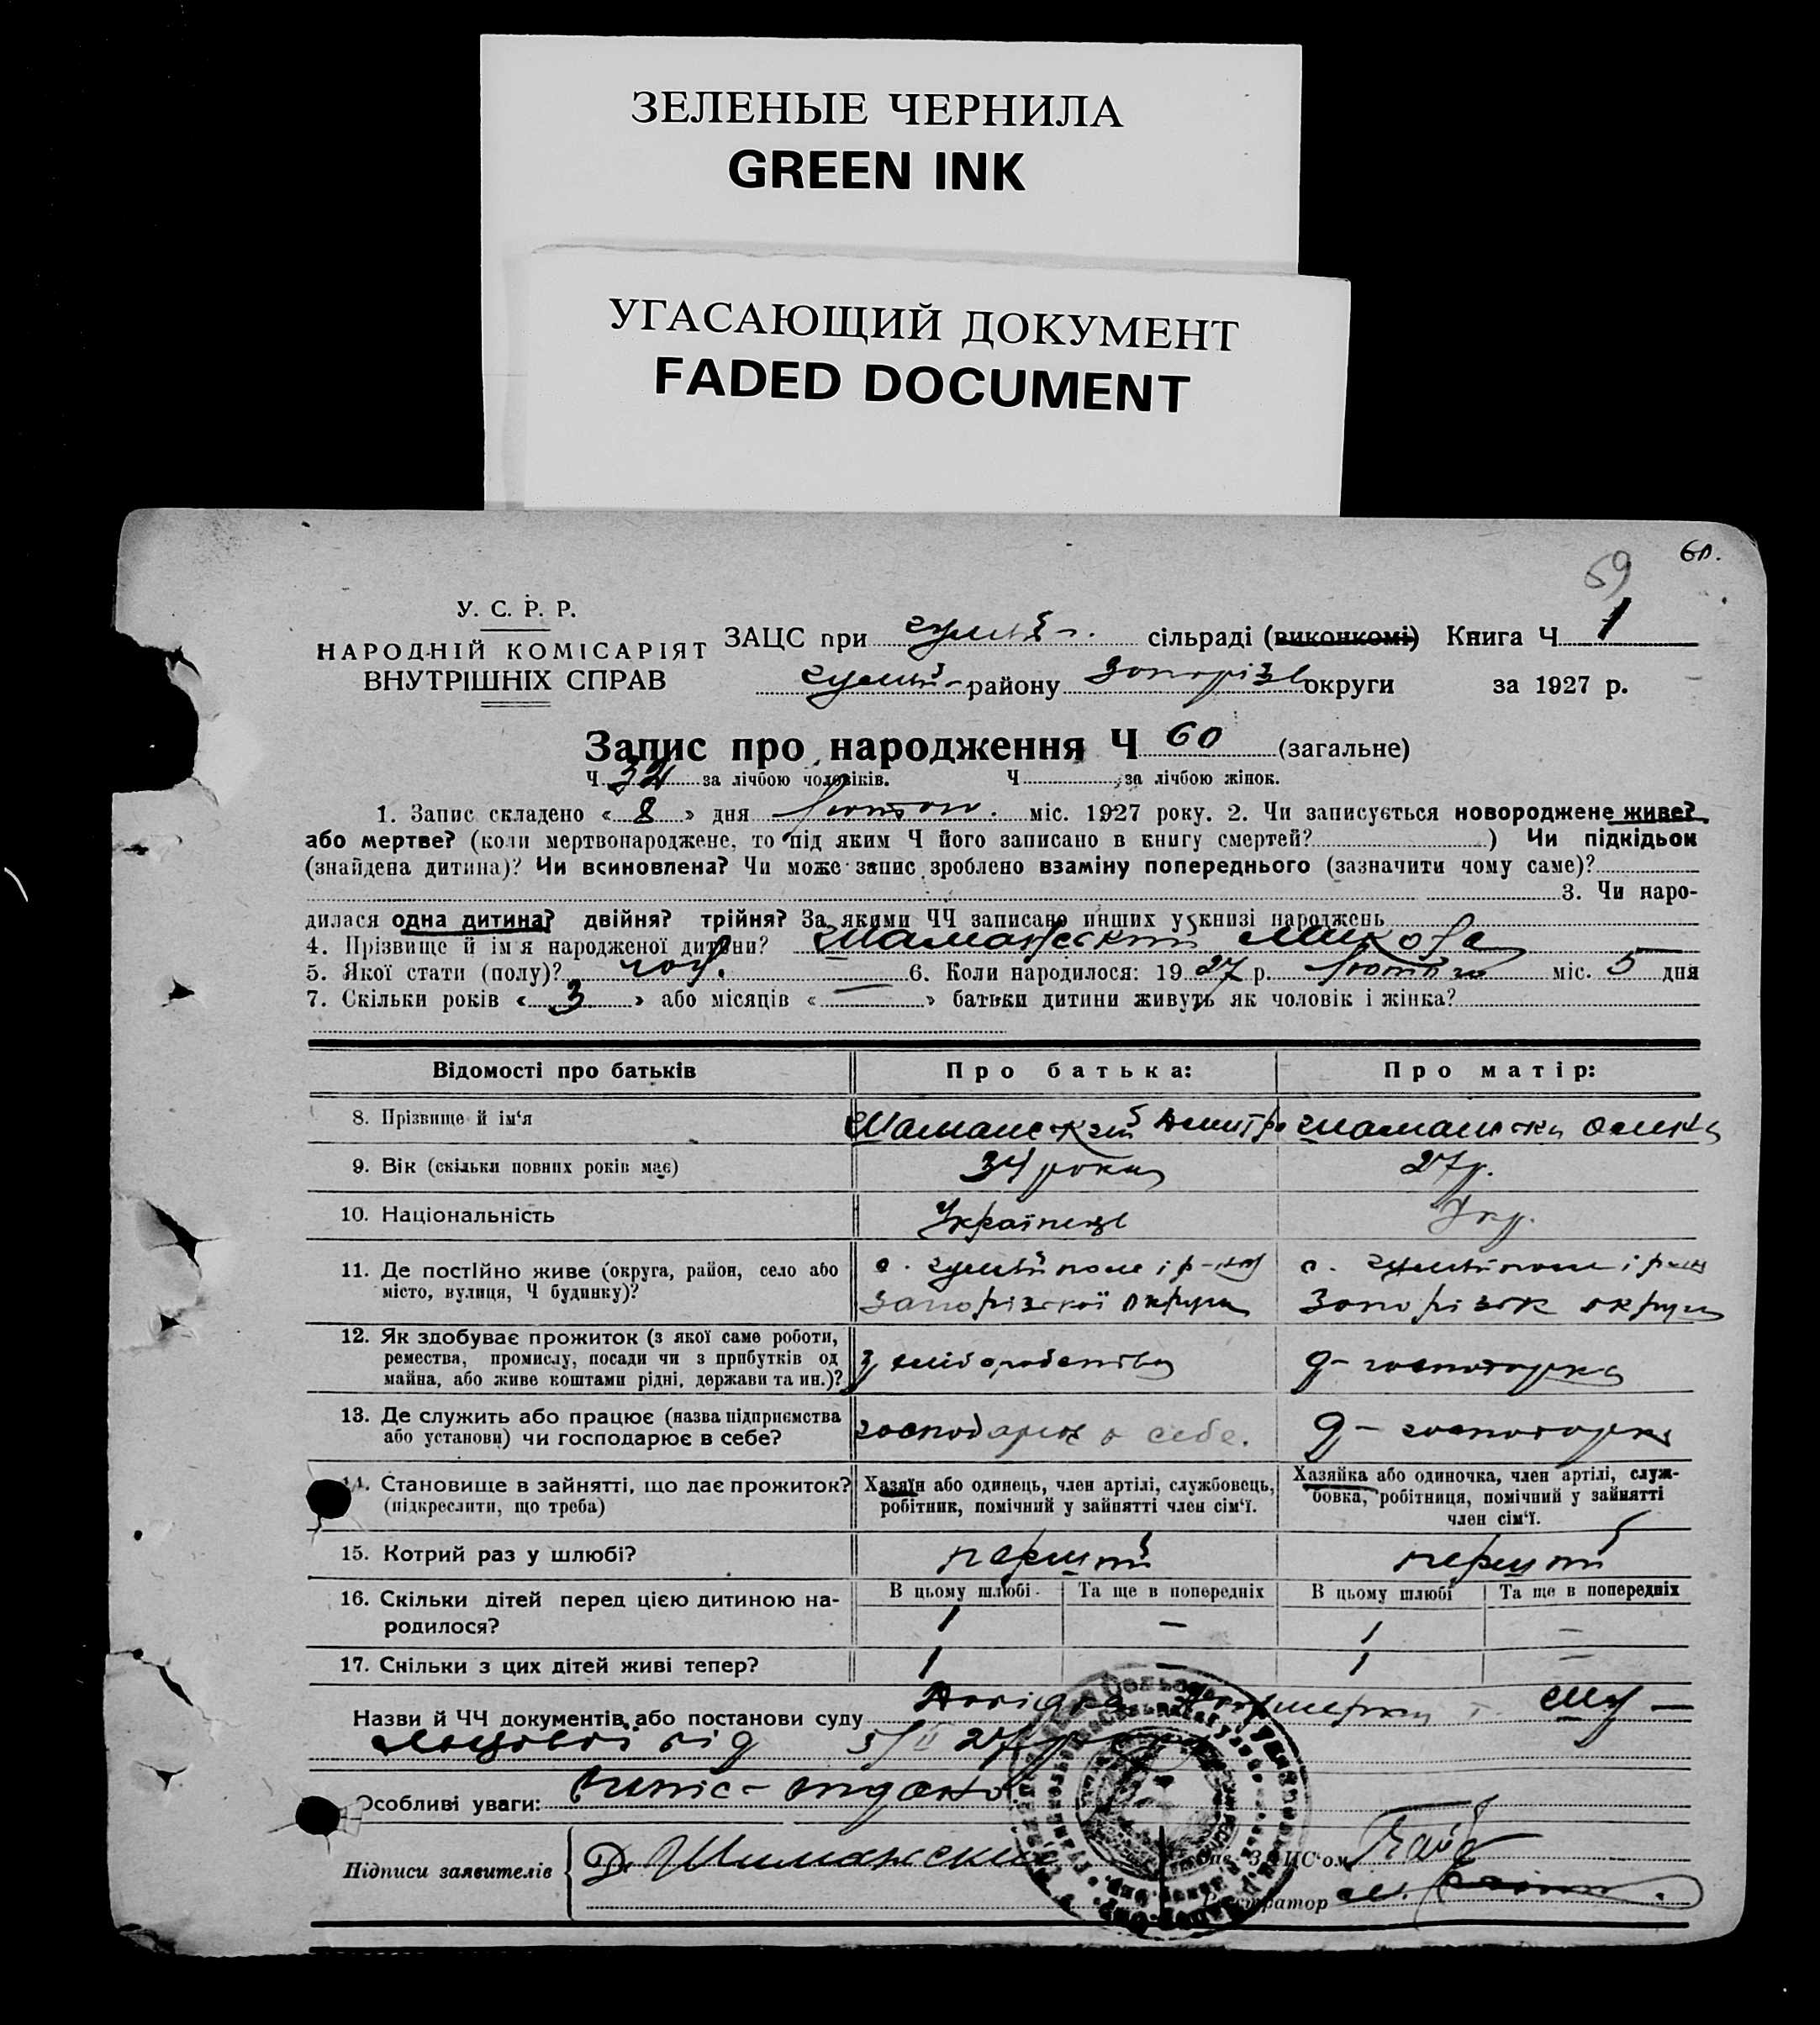 ЗЕЛЕНЫЕ ЧЕРНИЛА
GREEN INK
УГАСАЮЩИЙ ДОКУМЕНТ
FADED DOCUMENT
59 60.
У. С. Р. Р.
НАРОДНІЙ КОМІСАРІЯТ
ВНУТРІШНІХ СПРАВ
ЗАЦС при гуляй-п. сільраді (виконкомі) Книга Ч 1
гуляй- району Запорізь округи за 1927 р.
Запис про народження Ч 60 (загальне)
Ч 34 за лічбою чоловіків. Ч за лічбою жінок.
1. Запис складено « 8 » дня лютого міс. 1927 року. 2. Чи записується новороджене живе?
або мертве? (коли мертвонароджене, то під яким Ч його записано в книгу смертей? ) Чи підкідьок
(знайдена дитина)? Чи всиновлена? Чи може запис зроблено взаміну попереднього (зазначити чому саме)?
3. Чи наро-
дилася одна дитина? двійня? трійня? За якими ЧЧ записано инших у книзі народжень
4. Прізвище й ім'я народженої дитини? Шаманський Микола
5. Якої стати (полу)? чол. 6. Коли народилося: 1927 р. лютого міс. 5 дня
7. Скільки років « 3 » або місяців « — » батьки дитини живуть як чоловік і жінка?
Відомості про батьків
Про батька:
Про матір:
8. Прізвище й ім'я
Шаманський Дмитро
Шаманська
9. Вік (скільки повних років має)
34 роки
27 р.
10. Національність
Українець
Укр.
11. Де постійно живе (округа, район, село або
місто, вулиця, Ч будинку)?
с. гуляйполе і р-ну
Запорізької округи
с. гуляйполе і р-ну
Запорізьк округи
12. Як здобуває прожиток (з якої саме роботи,
ремества, промислу, посади чи з прибутків од
майна, або живе коштами рідні, держави та ин.)?
з хліборобства
д-господарка
13. Де служить або працює (назва підприємства
або установи) чи господарює в себе?
господарює в себе.
д-господарка
14. Становище в зайнятті, що дає прожиток?
(підкреслити, що треба)
Хазяїн або одинець, член артілі, службовець,
робітник, помічний у зайнятті член сім'ї.
Хазяйка або одиночка, член артілі, служ-
бовка, робітниця, помічний у зайнятті
член сім'ї.
15. Котрий раз у шлюбі?
перший
перший
В цьому шлюбі Та ще в попередніх В цьому шлюбі Та ще в попередніх
16. Скільки дітей перед цією дитиною на-
родилося?
1 — 1 —
17. Скільки з цих дітей живі тепер?
1 1 —
Назви й ЧЧ документів або постанови суду Довідка
від 5/II 27 року
Особливі уваги: випис видано
Підписи заявителів
Д. Шиманский
Зав. ЗАЦС'ом
Реєстратор